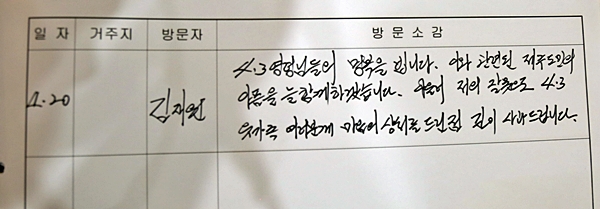 일 자 거주지 방문자 방 문 소 감
1.20 김재원
4.3영령님들의 명복을 빕니다. 이와 관련된 제주도민의
아픔을 늘 함께하겠습니다. 아울러 저의 잘못으로 4.3
유가족 여러분께 마음의 상처를 드린점 깊이 사과드립니다.